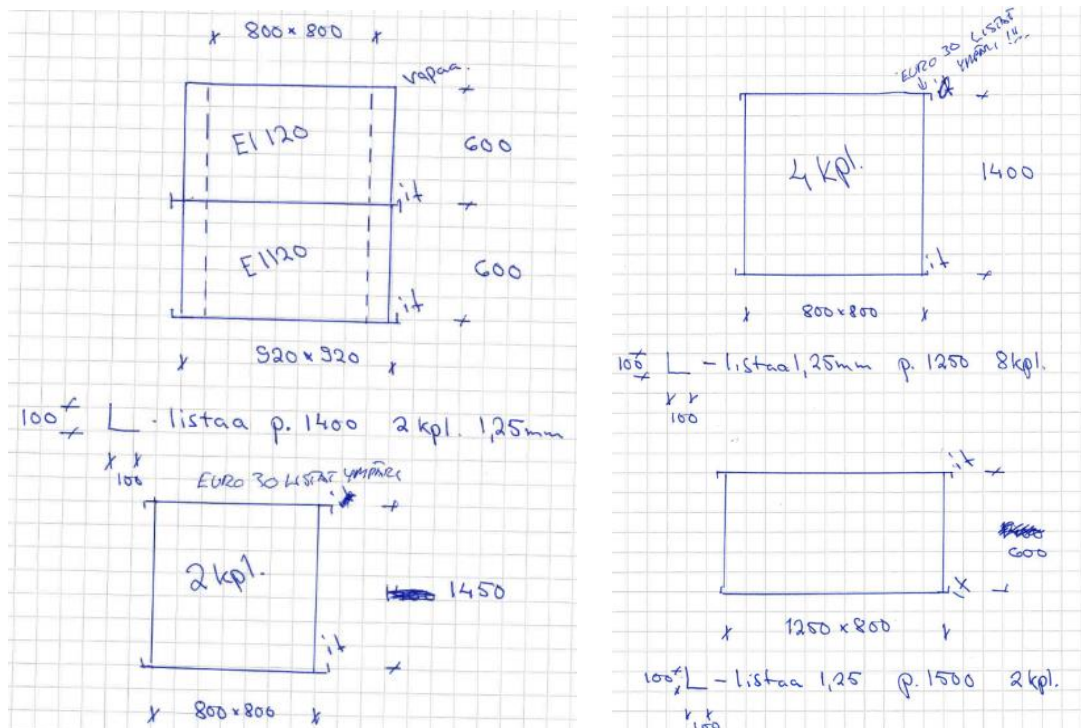 800 x 800
vapaa.
EI 120
600
it
EI 120
600
it
920 x 920
100 L - listaa p. 1400 2 kpl. 1,25mm
100
EURO 30 LISTAT YMPÄRI
it
2 kpl.
1450
it
800 x 800
EURO 30 LISTAT
YMPÄRI !!!
it
4 kpl.
1400
it
800 x 800
100 L - listaa 1,25mm p. 1250 8 kpl.
100
it
600
1250 x 800
100 L - listaa 1,25 p. 1500 2 kpl.
100